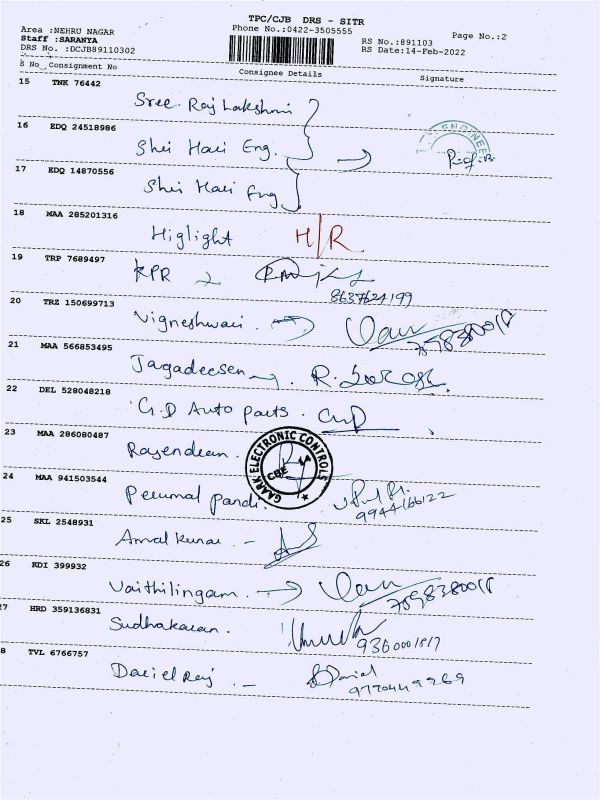 TPC/CJB DRS - SITR
Area :NEHRU NAGAR
Phone No.:0422-3505555
Page No.:2
Staff :SARANYA
RS No.:891103
DRS No. :DCJB89110302
RS Date:14-Feb-2022
S No Consignment No
Consignee Details
Signature
15 TNK 76442
Sree Raj Lakshmi
16 EDQ 24518986
Shri Hari Eng.
17 EDQ 14870556
Shri Hari Eng
18 MAA 285201316
Higlight H/R
19 TRP 7689497
KPR
8637624199
20 TRZ 150699713
Vigneshwari.
7598380018
21 MAA 566853495
Jagadeesen
22 DEL 528048218
G.D Auto parts.
23 MAA 286080487
Rajendran.
GAARK ELECTRONIC CONTROLS
CBE
24 MAA 941503544
Perumal pandi.
9944166122
25 SKL 2548931
Amal kumar -
26 KDI 399932
Vaithilingam.
7598380018
27 HRD 359136831
Sudhakaran.
9360001817
28 TVL 6766757
Daniel Raj. -
Daniel
9770449269